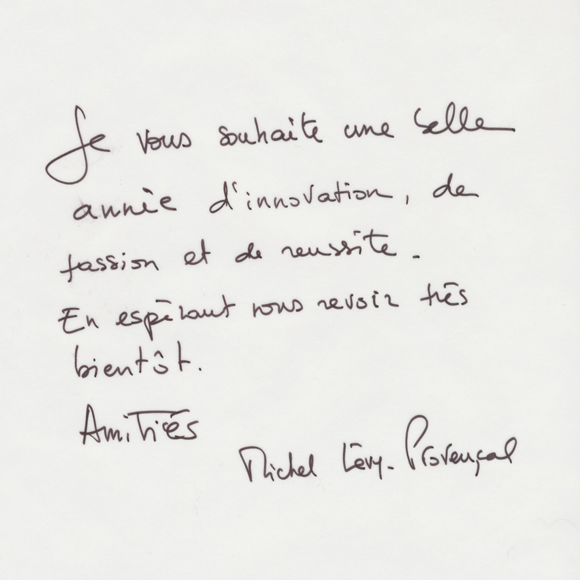 Je vous souhaite une belle
année d'innovation, de
passion et de reussite.
En espérant vous revoir très
bientôt.
Amitiés
Michel Lévy-Provençal